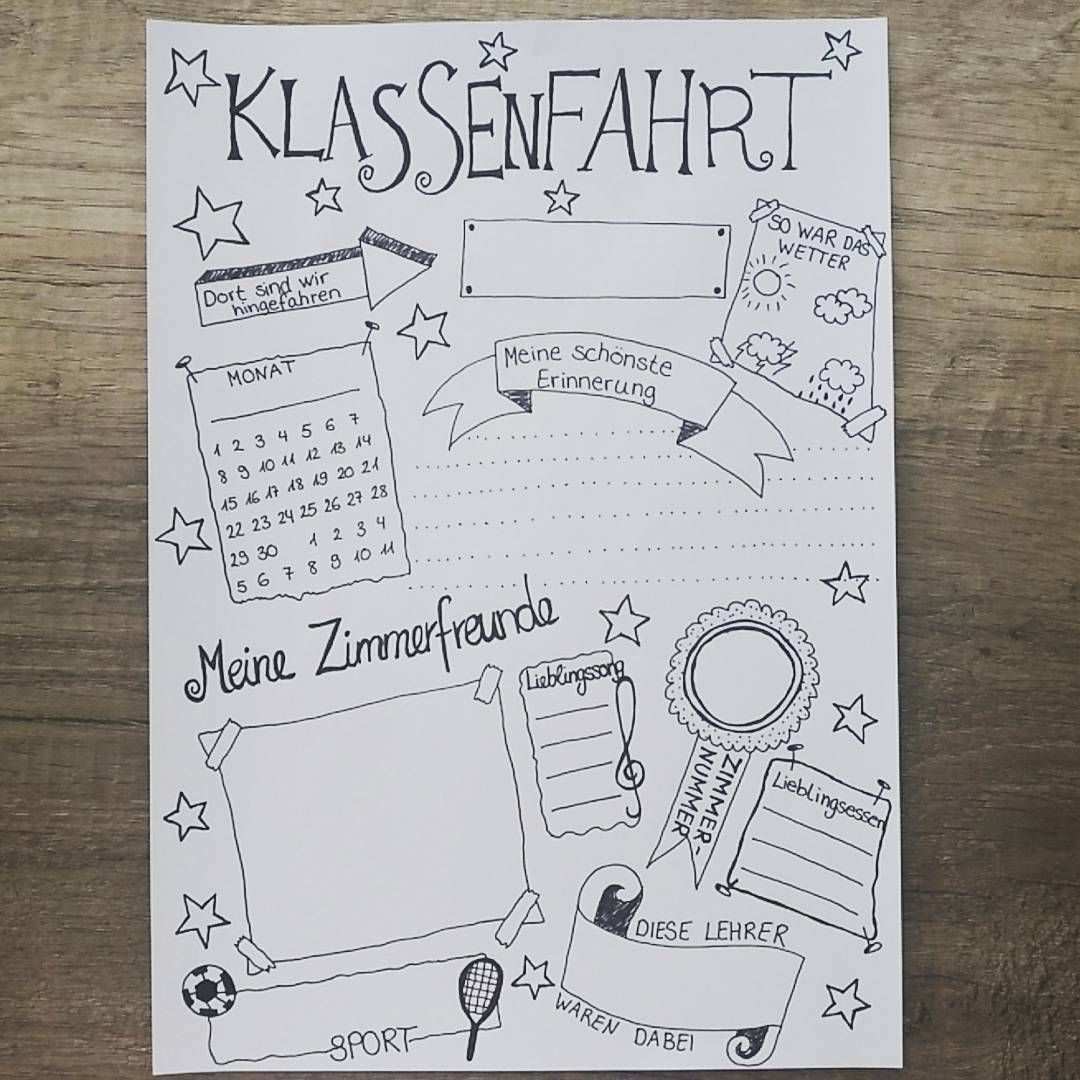 KLASSENFAHRT
Dort sind wir
hingefahren
SO WAR DAS
WETTER
MONAT
1 2 3 4 5 6 7
8 9 10 11 12 13 14
15 16 17 18 19 20 21
22 23 24 25 26 27 28
29 30 1 2 3 4
5 6 7 8 9 10 11
Meine schönste
Erinnerung
Meine Zimmerfreunde
Lieblingssong
ZIMMER-
NUMMER
Lieblingsessen
DIESE LEHRER
WAREN DABEI
SPORT